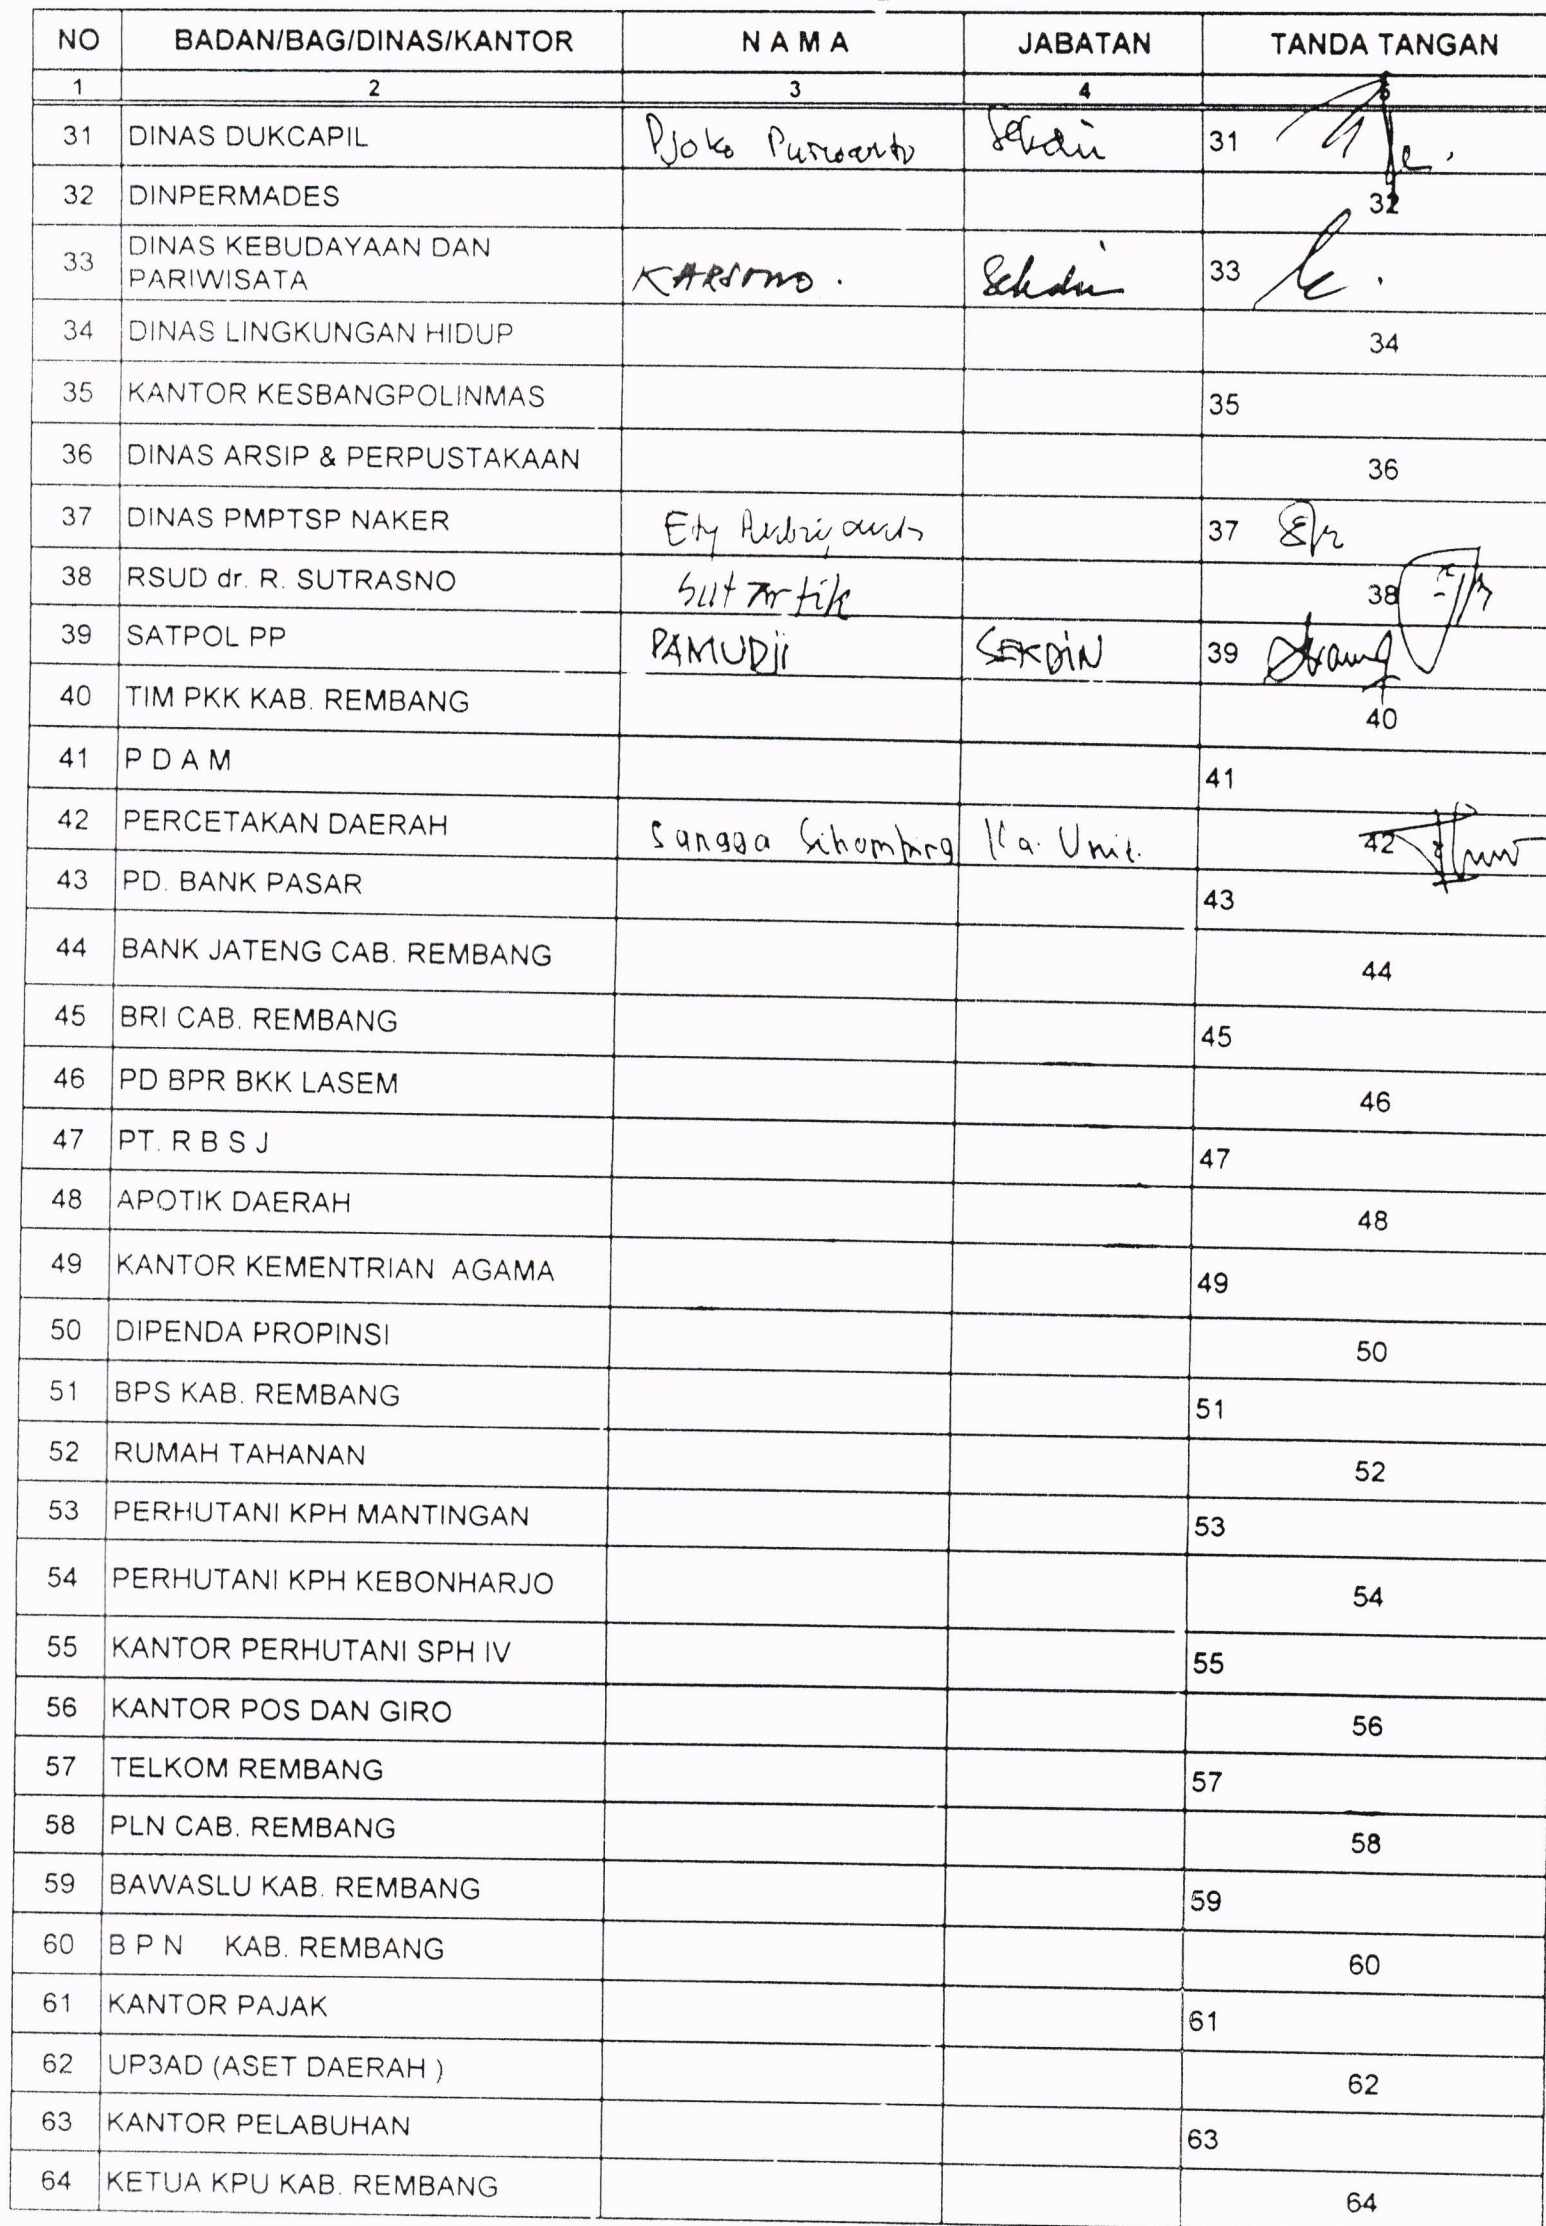 NO BADAN/BAG/DINAS/KANTOR N A M A JABATAN TANDA TANGAN
1 2 3 4 5
31 DINAS DUKCAPIL Djoko Purwanto Sekdin 31
32 DINPERMADES 32
33 DINAS KEBUDAYAAN DAN
PARIWISATA KARSONO. Sekdin 33
34 DINAS LINGKUNGAN HIDUP 34
35 KANTOR KESBANGPOLINMAS 35
36 DINAS ARSIP & PERPUSTAKAAN 36
37 DINAS PMPTSP NAKER Ety 37
38 RSUD dr. R. SUTRASNO Sutartik 38
39 SATPOL PP PAMUDJi SEKDiN 39
40 TIM PKK KAB. REMBANG 40
41 P D A M 41
42 PERCETAKAN DAERAH Sangga Sihombing Ka. Unit. 42
43 PD. BANK PASAR 43
44 BANK JATENG CAB. REMBANG 44
45 BRI CAB. REMBANG 45
46 PD BPR BKK LASEM 46
47 PT. R B S J 47
48 APOTIK DAERAH 48
49 KANTOR KEMENTRIAN AGAMA 49
50 DIPENDA PROPINSI 50
51 BPS KAB. REMBANG 51
52 RUMAH TAHANAN 52
53 PERHUTANI KPH MANTINGAN 53
54 PERHUTANI KPH KEBONHARJO 54
55 KANTOR PERHUTANI SPH IV 55
56 KANTOR POS DAN GIRO 56
57 TELKOM REMBANG 57
58 PLN CAB. REMBANG 58
59 BAWASLU KAB. REMBANG 59
60 B P N KAB. REMBANG 60
61 KANTOR PAJAK 61
62 UP3AD (ASET DAERAH ) 62
63 KANTOR PELABUHAN 63
64 KETUA KPU KAB. REMBANG 64